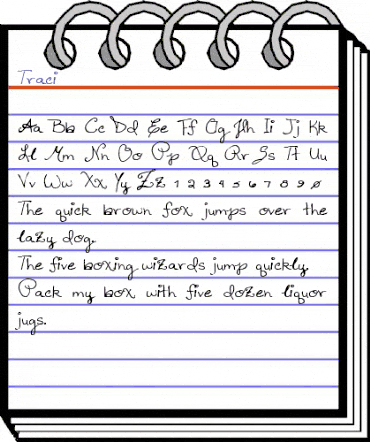 Traci
Aa Bb Cc Dd Ee Ff Gg Hh Ii Jj Kk
Ll Mm Nn Oo Pp Qq Rr Ss Tt Uu
Vv Ww Xx Yy Zz 1 2 3 4 5 6 7 8 9 0
The quick brown fox jumps over the
lazy dog.
The five boxing wizards jump quickly.
Pack my box with five dozen liquor
jugs.